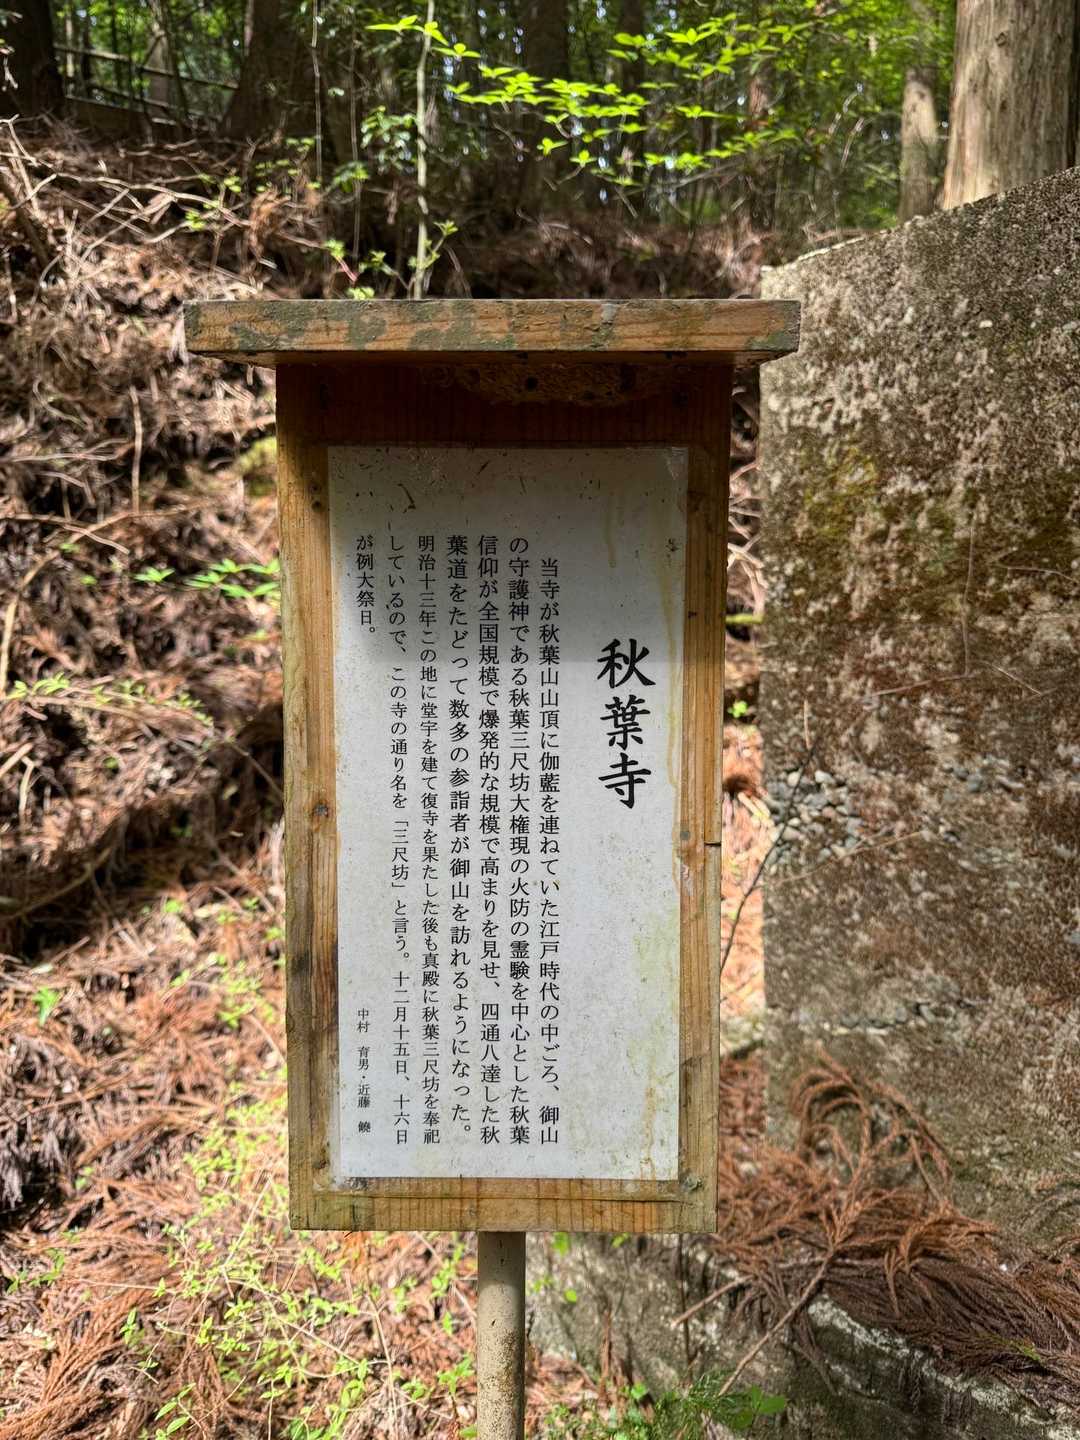 秋葉寺
当寺が秋葉山山頂に伽藍を連ねていた江戸時代の中ごろ、御山
の守護神である秋葉三尺坊大権現の火防の霊験を中心とした秋葉
信仰が全国規模で爆発的な規模で高まりを見せ、四通八達した秋
葉道をたどって数多の参詣者が御山を訪れるようになった。
明治十三年この地に堂宇を建て復寺を果たした後も真殿に秋葉三尺坊を奉祀
しているので、この寺の通り名を「三尺坊」と言う。十二月十五日、十六日
が例大祭日。
中村 育男・近藤 饒